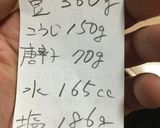 豆 360g
こうじ 150g
唐辛子 70g
水 165cc
塩 186g